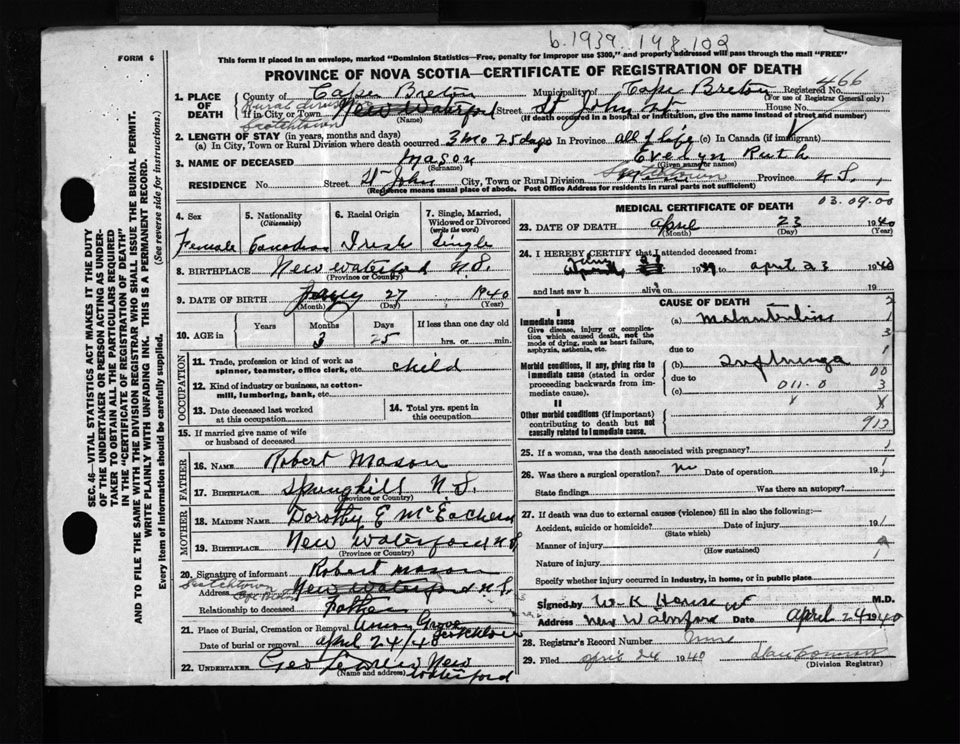 b. 1939. 148102
FORM 6
This form if placed in an envelope, marked "Dominion Statistics—Free, penalty for improper use $300," and properly addressed will pass through the mail "FREE"
PROVINCE OF NOVA SCOTIA—CERTIFICATE OF REGISTRATION OF DEATH
466
1. PLACE OF DEATH
County of Cape Breton Municipality of Cape Breton Registered No.
(For use of Registrar General only)
Rural
If in City or Town New Waterford Street St John House No.
(Name) (If death occurred in a hospital or institution, give the name instead of street and number)
Scotchtown
2. LENGTH OF STAY (in years, months and days)
(a) In City, Town or Rural Division where death occurred 3 mo 25 days In Province all of life (c) In Canada (if immigrant)
3. NAME OF DECEASED Mason Evelyn Ruth
(Surname) (Given name or names)
RESIDENCE No. Street St John City, Town or Rural Division Scotchtown Province N S.
(Residence means usual place of abode. Post Office Address for residents in rural parts not sufficient)
4. Sex
Female
5. Nationality (Citizenship)
Canadian
6. Racial Origin
Irish
7. Single, Married, Widowed or Divorced (write the word)
Single
8. BIRTHPLACE New Waterford N.S.
(Province or Country)
9. DATE OF BIRTH 27 1940
(Month) (Day) (Year)
10. AGE in Years Months Days If less than one day old
3 25 hrs. or min.
OCCUPATION
11. Trade, profession or kind of work as spinner, teamster, office clerk, etc. child
12. Kind of industry or business, as cotton-mill, lumbering, bank, etc.
13. Date deceased last worked at this occupation
14. Total yrs. spent in this occupation
15. If married give name of wife or husband of deceased
FATHER
16. NAME Robert Mason
17. BIRTHPLACE Springhill N.S.
(Province or Country)
MOTHER
18. MAIDEN NAME Dorothy E McEachern
19. BIRTHPLACE New Waterford N S
(Province or Country)
20. Signature of informant Robert Mason
Scotchtown
Address New Waterford N.S.
Relationship to deceased Father
21. Place of Burial, Cremation or Removal Union Grove
Scotchtown
Date of burial or removal april 24/40
22. UNDERTAKER Geo New Waterford
(Name and address)
03.09.00
MEDICAL CERTIFICATE OF DEATH
23. DATE OF DEATH April 23 1940
(Month) (Day) (Year)
24. I HEREBY CERTIFY that I attended deceased from:
19 to april 23 1940
and last saw h alive on 19
CAUSE OF DEATH
I
Immediate cause
Give disease, injury or complication which caused death, not the mode of dying, such as heart failure, asphyxia, asthenia, etc.
(a) Malnutrition
due to
Morbid conditions, if any, giving rise to immediate cause (stated in order proceeding backwards from immediate cause).
(b)
due to
(c) 011.0
II
Other morbid conditions (if important) contributing to death but not causally related to immediate cause.
912
25. If a woman, was the death associated with pregnancy?
26. Was there a surgical operation? no Date of operation 19
State findings Was there an autopsy?
27. If death was due to external causes (violence) fill in also the following:—
Accident, suicide or homicide? Date of injury 19
(State which)
Manner of injury
(How sustained)
Nature of injury
Specify whether injury occurred in industry, in home, or in public place
Signed by W K House M.D.
Address New Waterford Date April 24 1940
28. Registrar's Record Number
29. Filed april 24 1940
(Division Registrar)
SEC. 46—VITAL STATISTICS ACT MAKES IT THE DUTY OF THE UNDERTAKER OR PERSON ACTING AS UNDERTAKER TO OBTAIN ALL THE PARTICULARS REQUIRED IN THE "CERTIFICATE OF REGISTRATION OF DEATH" AND TO FILE THE SAME WITH THE DIVISION REGISTRAR WHO SHALL ISSUE THE BURIAL PERMIT.
WRITE PLAINLY WITH UNFADING INK. THIS IS A PERMANENT RECORD.
Every item of information should be carefully supplied. (See reverse side for instructions.)